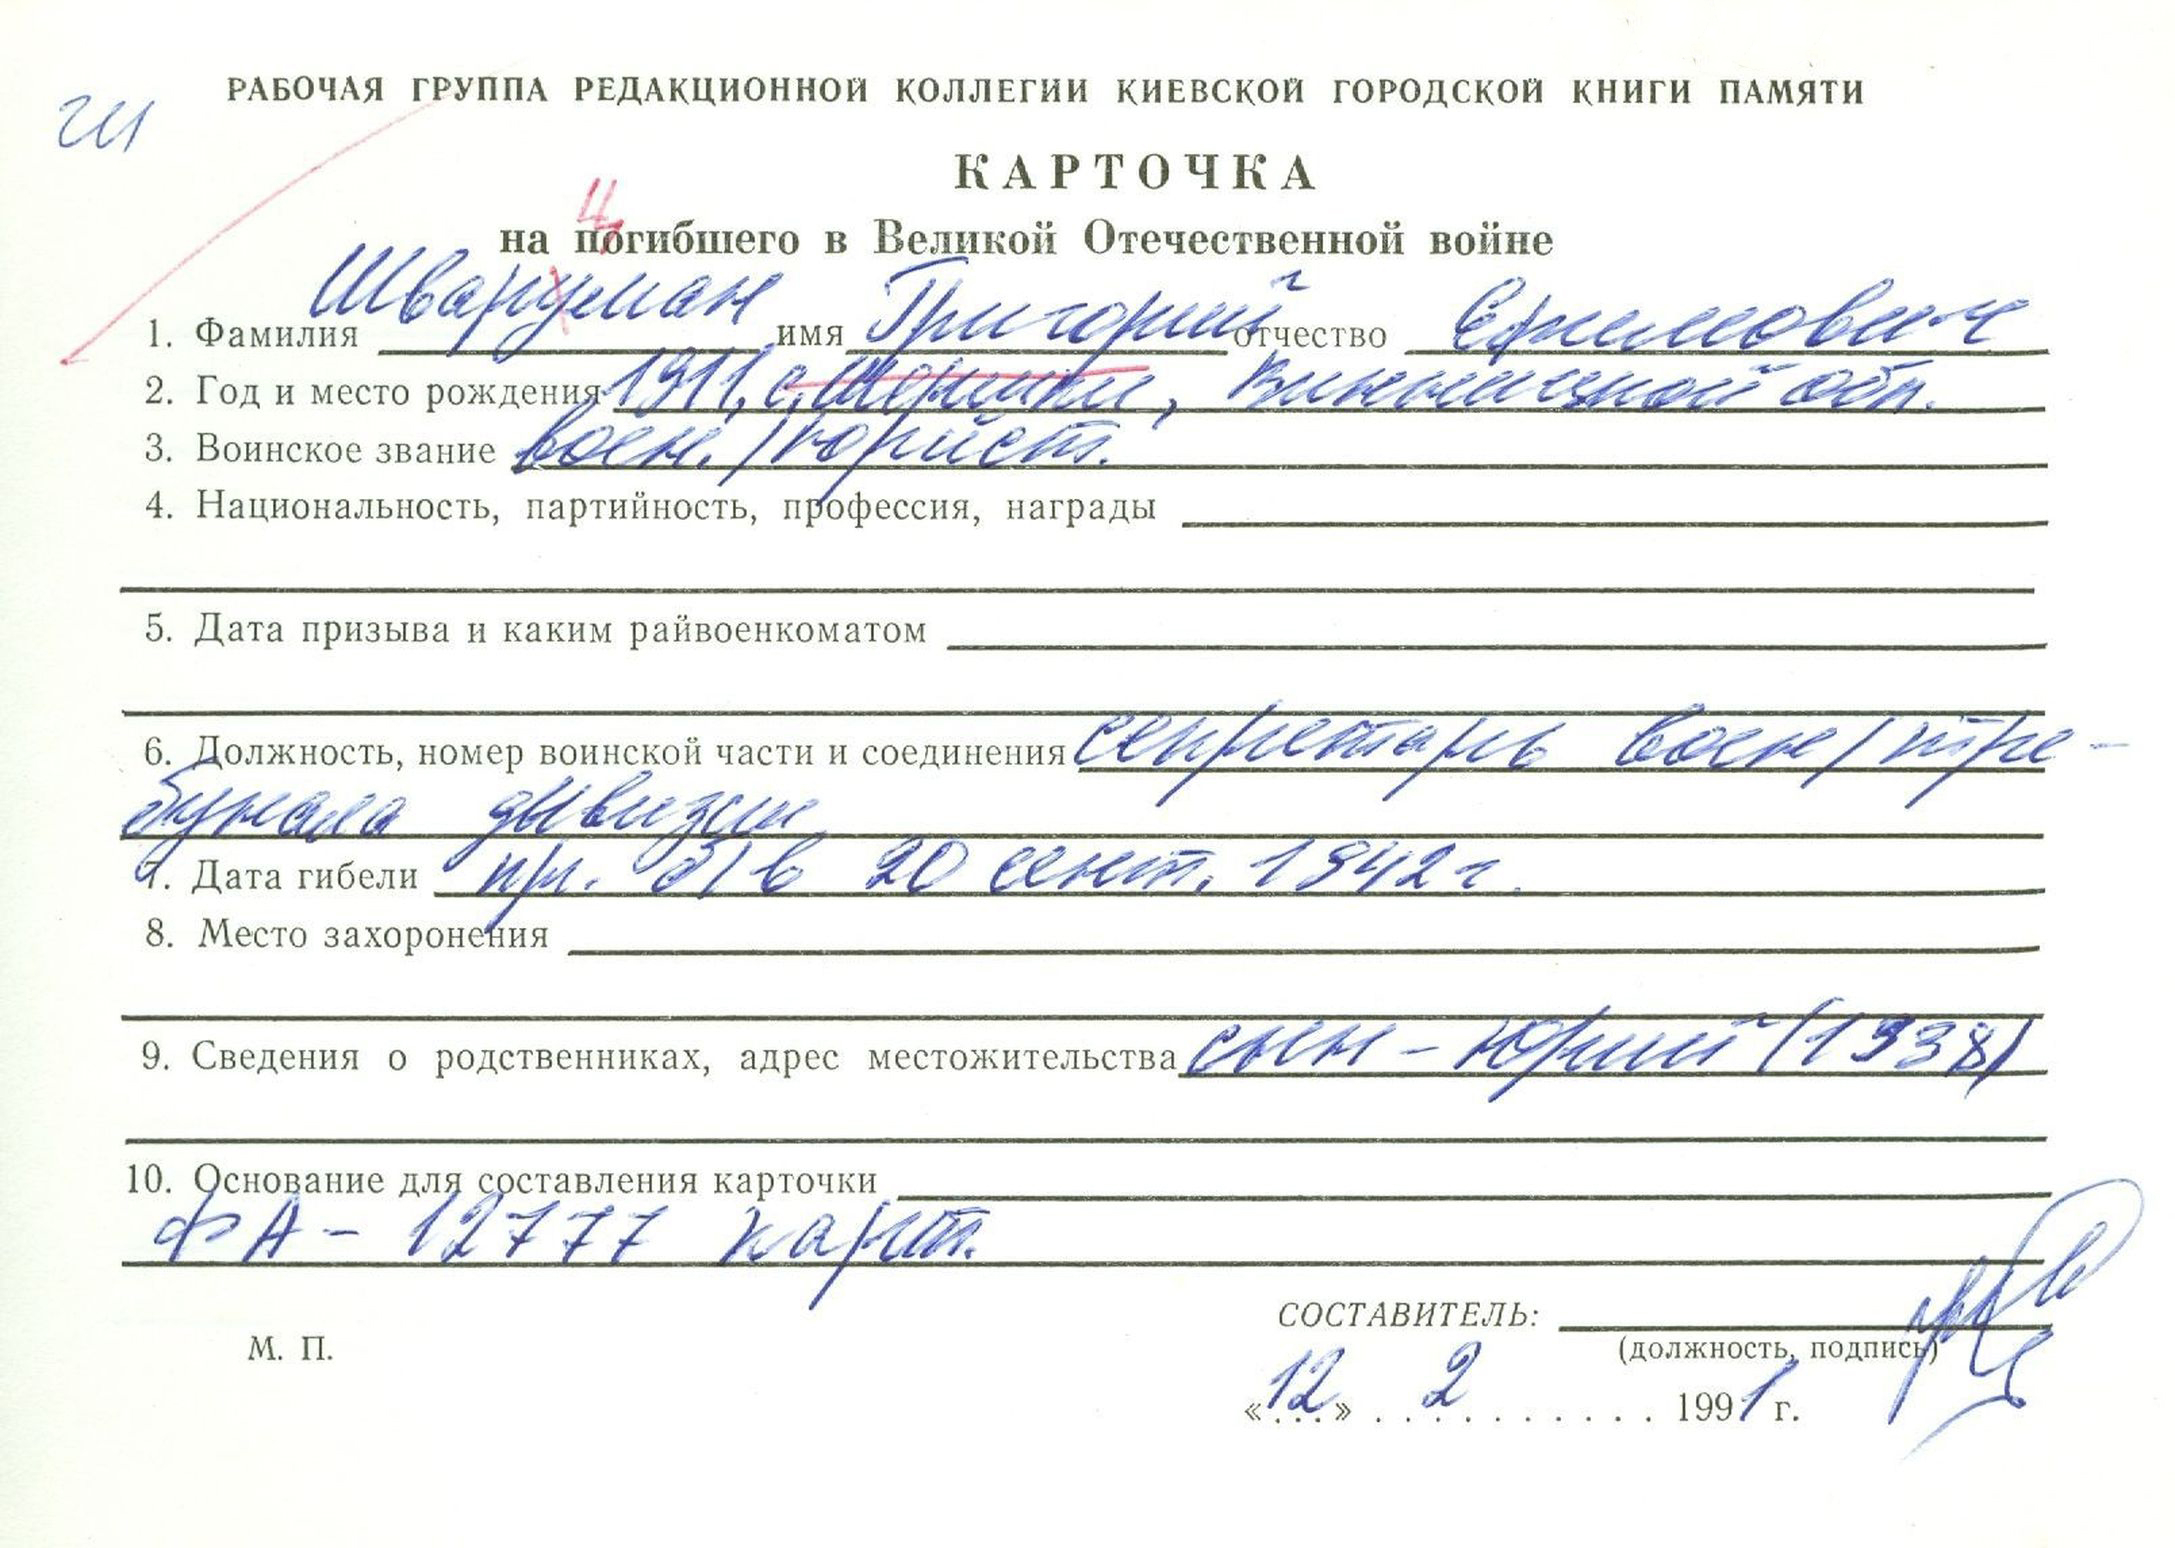 РАБОЧАЯ ГРУППА РЕДАКЦИОННОЙ КОЛЛЕГИИ КИЕВСКОЙ ГОРОДСКОЙ КНИГИ ПАМЯТИ
КАРТОЧКА
ц
на погибшего в Великой Отечественной войне
1. Фамилия Шварцман имя Григорий отчество Ефимович
2. Год и место рождения 1911, с. Винницкой обл.
3. Воинское звание воен./юрист.
4. Национальность, партийность, профессия, награды
5. Дата призыва и каким райвоенкоматом
6. Должность, номер воинской части и соединения секретарь воен/три-
бунала дивизии
7. Дата гибели пр. б/в 20 сент. 1942 г.
8. Место захоронения
9. Сведения о родственниках, адрес местожительства сын - Юрий (1938)
10. Основание для составления карточки
ФА - 12777 карт.
СОСТАВИТЕЛЬ:
М. П. (должность, подпись)
«12» 2 1991 г.